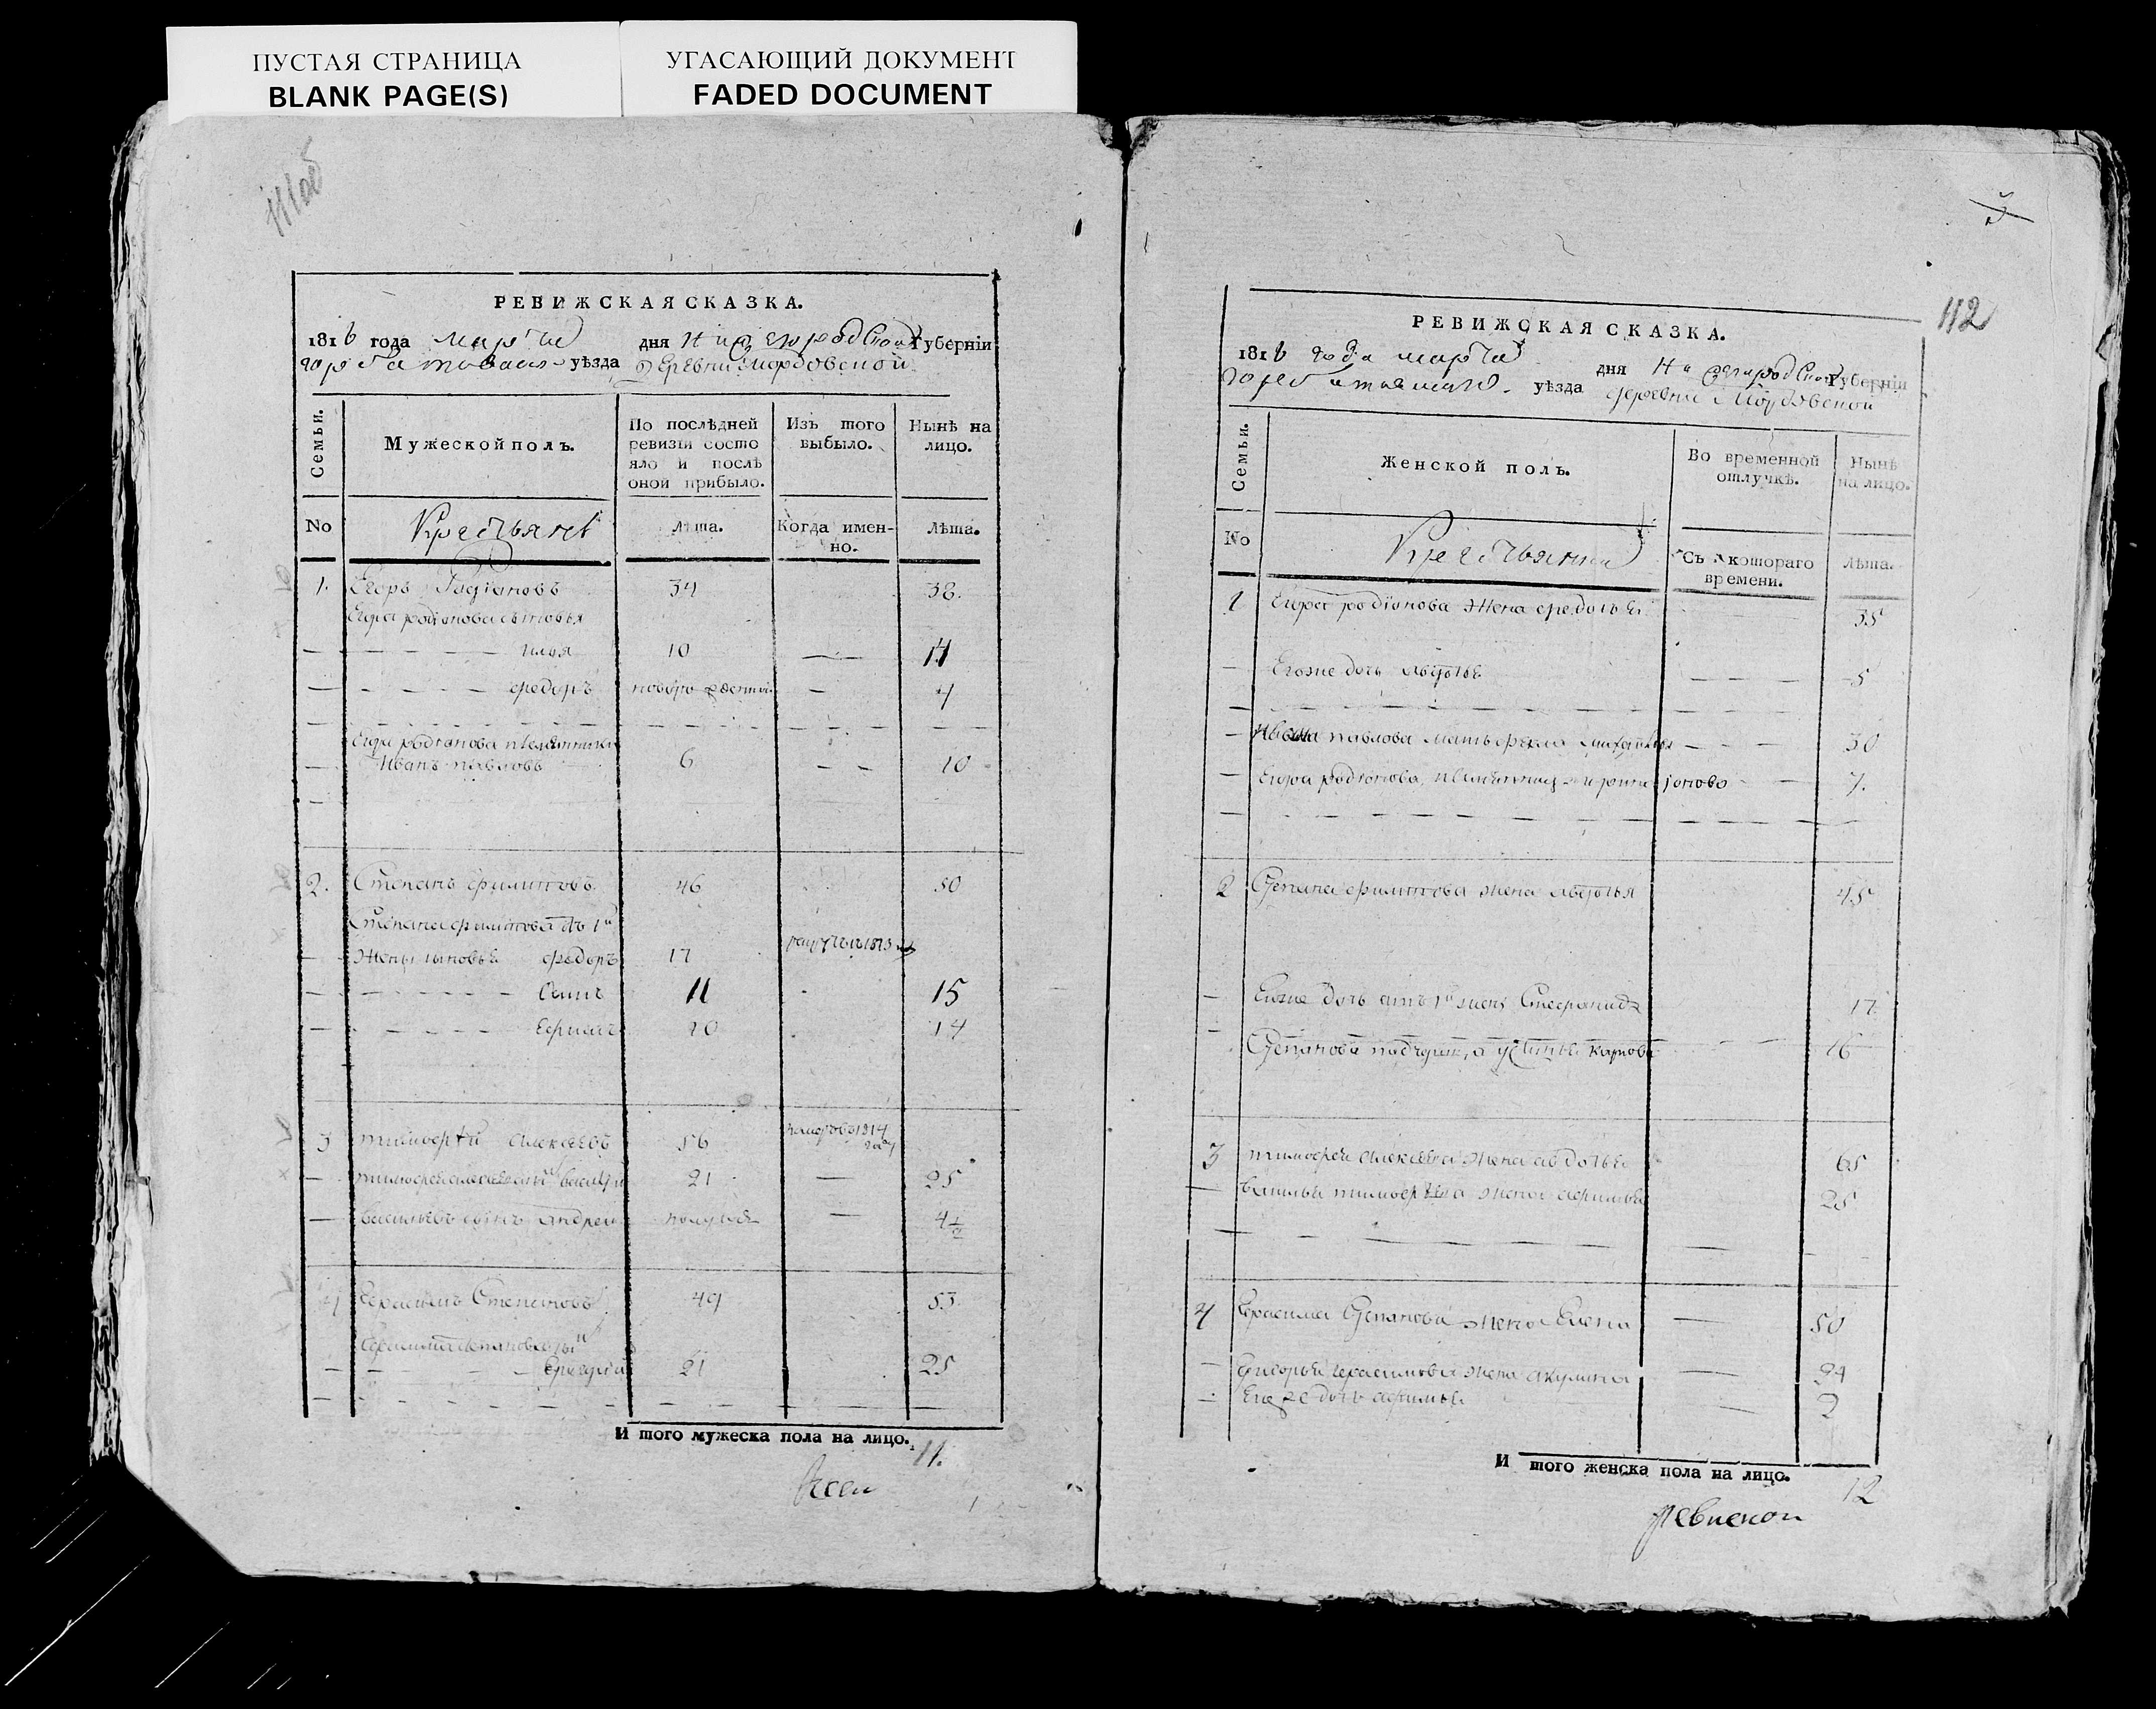 ПУСТАЯ СТРАНИЦА
BLANK PAGE(S)
УГАСАЮЩИЙ ДОКУМЕНТ
FADED DOCUMENT
111об
РЕВИЖСКАЯ СКАЗКА.
1816 года марта дня Нижегородской Губерніи
горбатовскаго уѣзда деревни Мордовской
Семьи.
Мужеской полъ.
По послѣдней ревизіи состояло и послѣ оной прибыло.
Изъ того выбыло.
Нынѣ на лицо.
No Крестьяне Лѣта. Когда именно. Лѣта.
1. Егоръ Радіановъ 34 38.
Егора родіонова сыновья
— илья 10 — 14
— федоръ новорожденной — 4
Егора родіонова племянникъ
— Иванъ павловъ 6 — 10
2. Степанъ филиповъ 46 50
Степана филипова отъ 1й
— жены сыновья федоръ 17 1813
— Осипъ 11 15
— Ефимъ 10 14
3 тимофей Алексѣевъ 56 1814 году
— тимофея алексѣева сынъ василий 21 — 25
— васильевъ сынъ андреи полугода — 4½
4 Герасимъ Степановъ 49 53
Герасима степанова сынъ
— Григорий 21 25
И того мужеска пола на лицо. 11.
3
112
РЕВИЖСКАЯ СКАЗКА.
1816 года марта дня Нижегородской Губерніи
горбатовскаго уѣзда деревни Мордовской
Семьи.
Женской полъ.
Во временной отлучкѣ.
Нынѣ на лицо.
No Крестьянки Съ котораго времени. Лѣта.
1 Егора родіонова жена федосья 35
— Егоже дочь авдотья — 5
— Ивана павлова мать фекла — 30
— Егора родіонова племянница 7.
2 Степана филипова жена авдотья 45
— Егоже дочь отъ 1й жены Стефанида 17
— Степанова падчерица устинья карпова 16
3 тимофея алексѣева жена авдотья 65
— василья тимофеева жена афимья 25
4 Герасима Степанова жена Елена — 50
— Григорья герасимова жена акулина — 24
— Егоже дочь афимья — 2
И того женска пола на лицо. 12
ревиской